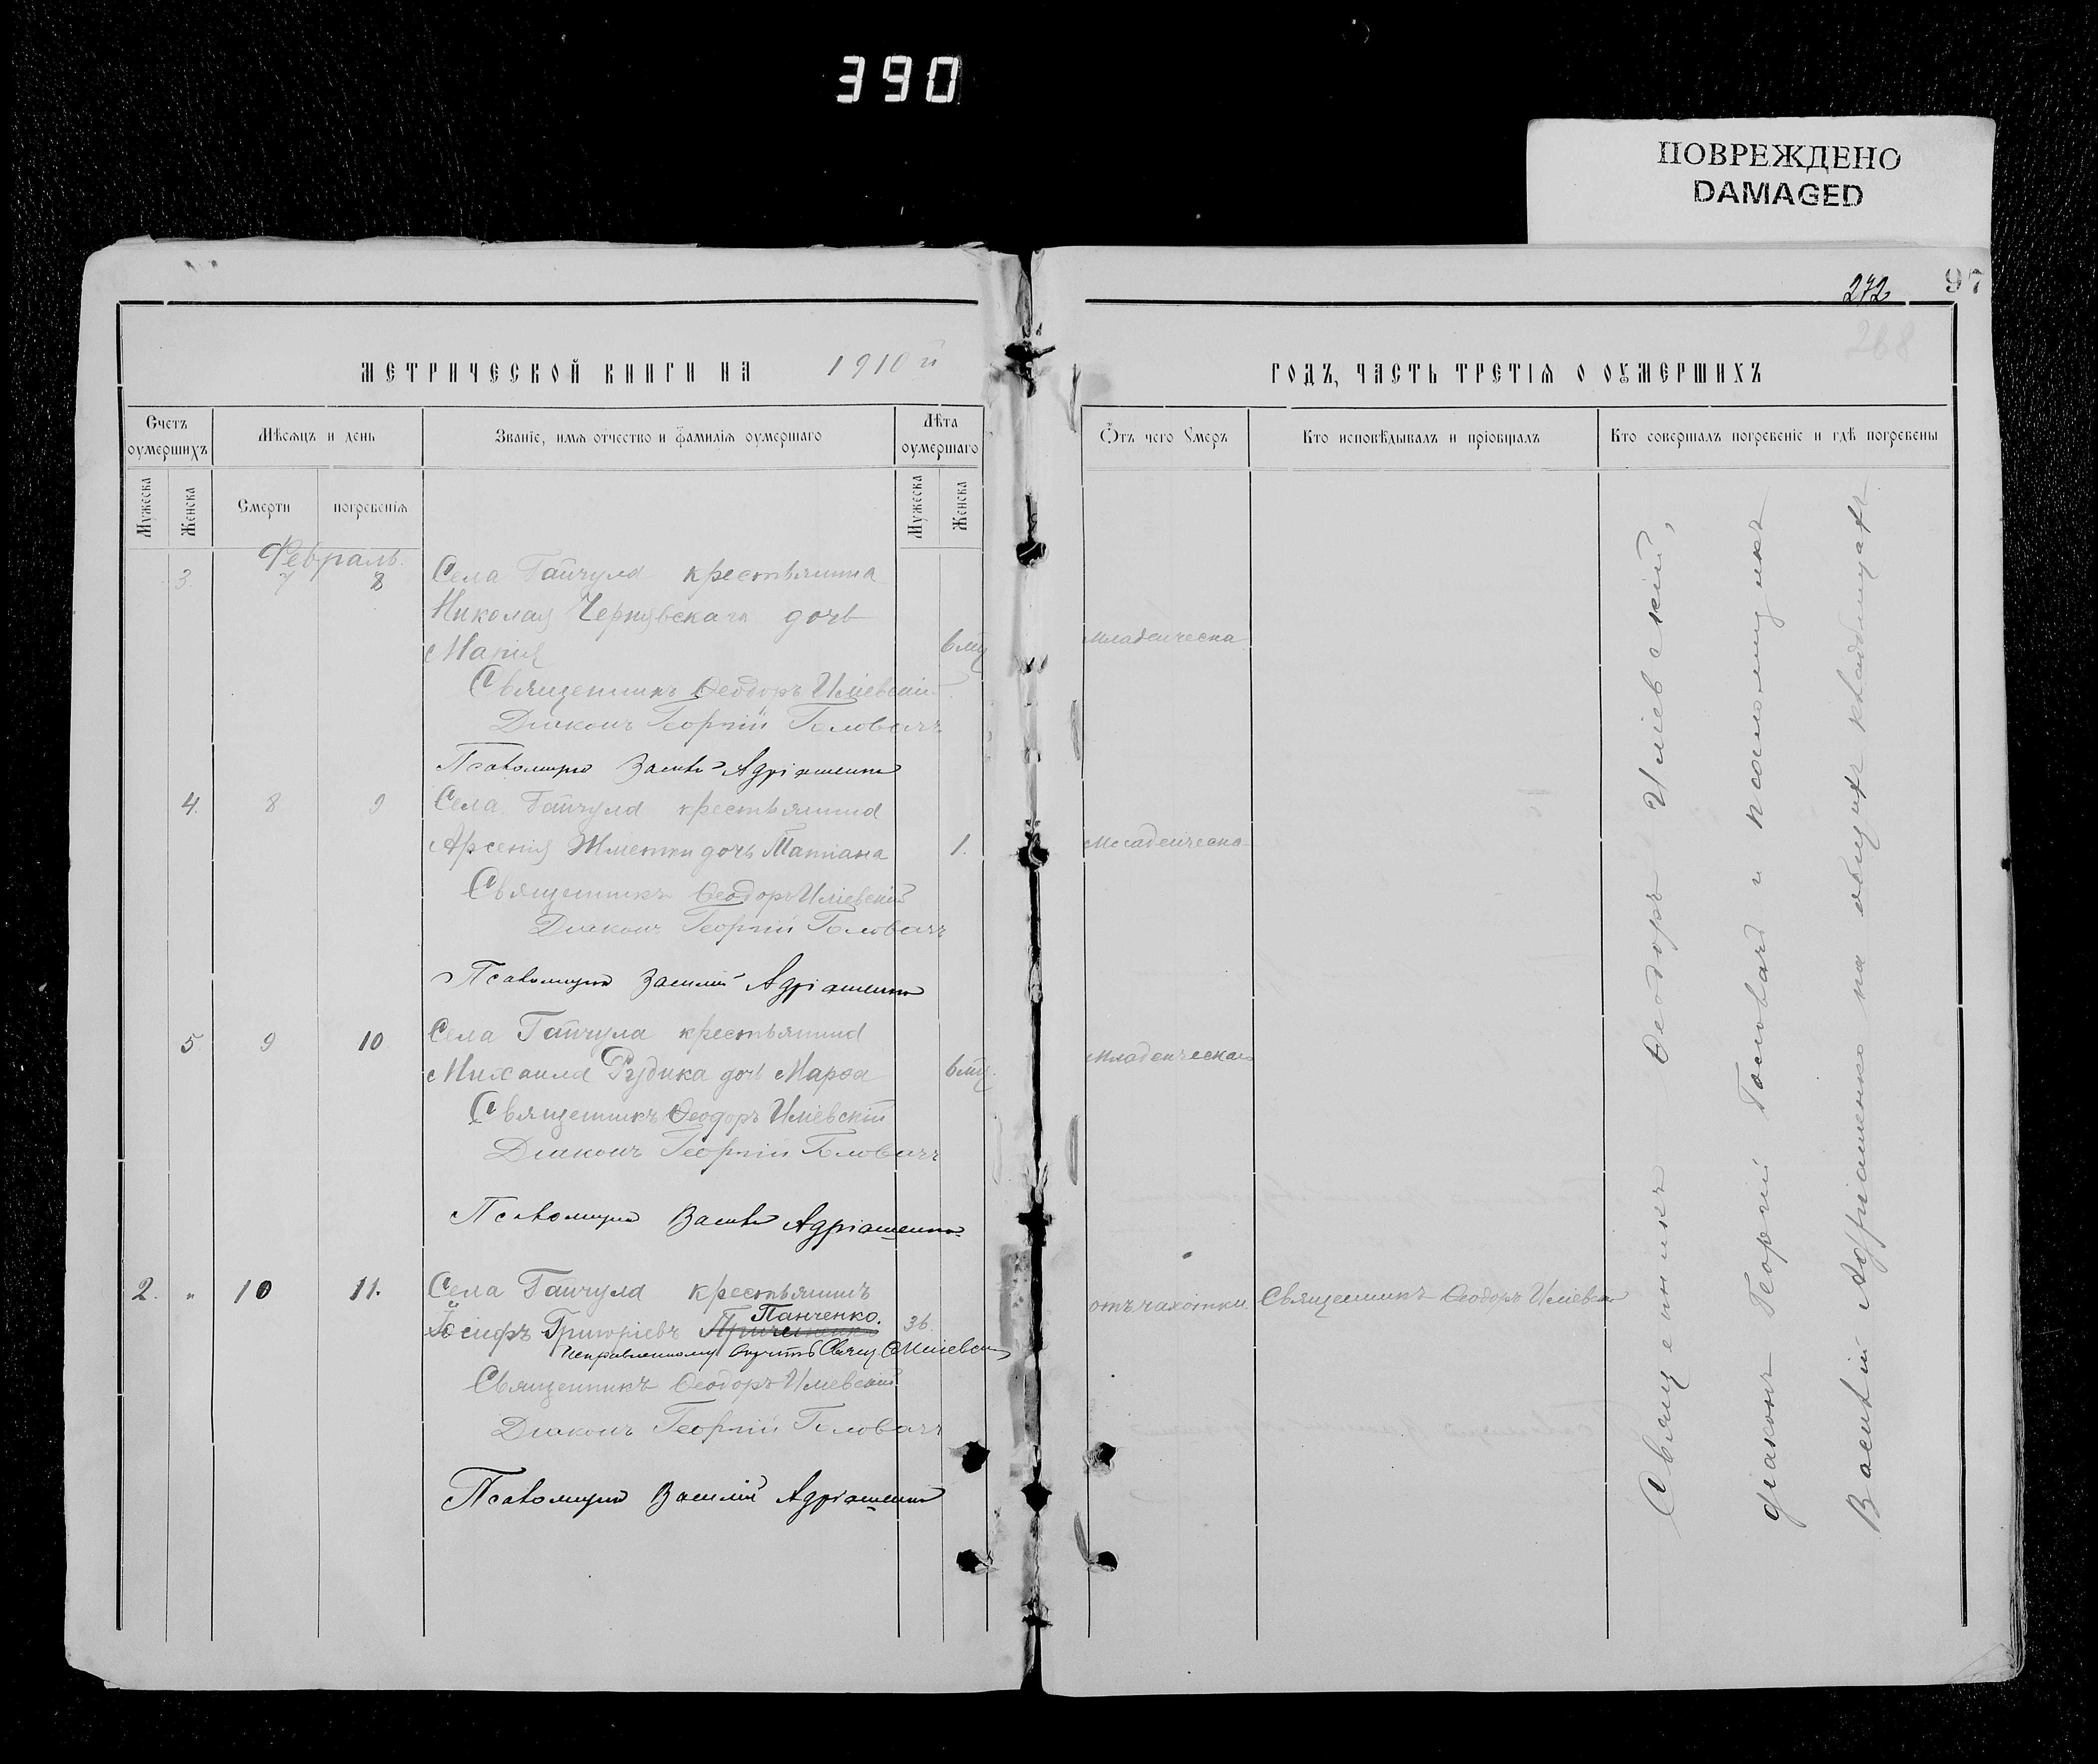 390
ПОВРЕЖДЕНО
DAMAGED
97
272
268
МЕТРИЧЕСКОЙ КНИГИ НА 1910й
ГОДЪ, ЧАСТЬ ТРЕТІЯ О ОУМЕРШИХЪ
Счетъ оумершихъ
Мѣсяцъ и день
Званіе, имя отчество и фамилія оумершаго
Лѣта оумершаго
Отъ чего Умеръ
Кто исповѣдывалъ и пріобщалъ
Кто совершалъ погребеніе и гдѣ погребены
Мужеска
Женска
Смерти
погребенія
Мужеска
Женска
Февраль
3. 7 8 Села Гайчула крестьянина
Николая Чернявскаго дочь
Марія 6 мц младенческа
Священникъ Ѳеодоръ Иліевскій
Діаконъ Георгій Головачъ
Псаломщикъ Василій Адріашенко
4. 8 9 Села Гайчула крестьянина
Арсенія дочь Татіана 1. Младенческа
Священникъ Ѳеодоръ Иліевскій
Діаконъ Георгій Головачъ
Псаломщикъ Василій Адріашенко
5 9 10 Села Гайчула крестьянина
Михаила Рудика дочь Марѳа 6 мц. младенческая
Священникъ Ѳеодоръ Иліевскій
Діаконъ Георгій Головачъ
Псаломщикъ Василій Адріашенко
2. " 10 11. Села Гайчула крестьянинъ
Панченко.
Іосифъ Григоріевъ 36 отъ чахотки Священникъ Ѳеодоръ Иліевскій
Исправленному Свящ Иліевскій
Священникъ Ѳеодоръ Иліевскій
Діаконъ Георгій Головачъ
Псаломщикъ Василій Адріашенко
Священникъ Ѳеодоръ Иліевскій,
діаконъ Георгій Головачъ и псаломщикъ
Василій Адріашенко на общемъ кладбищѣ